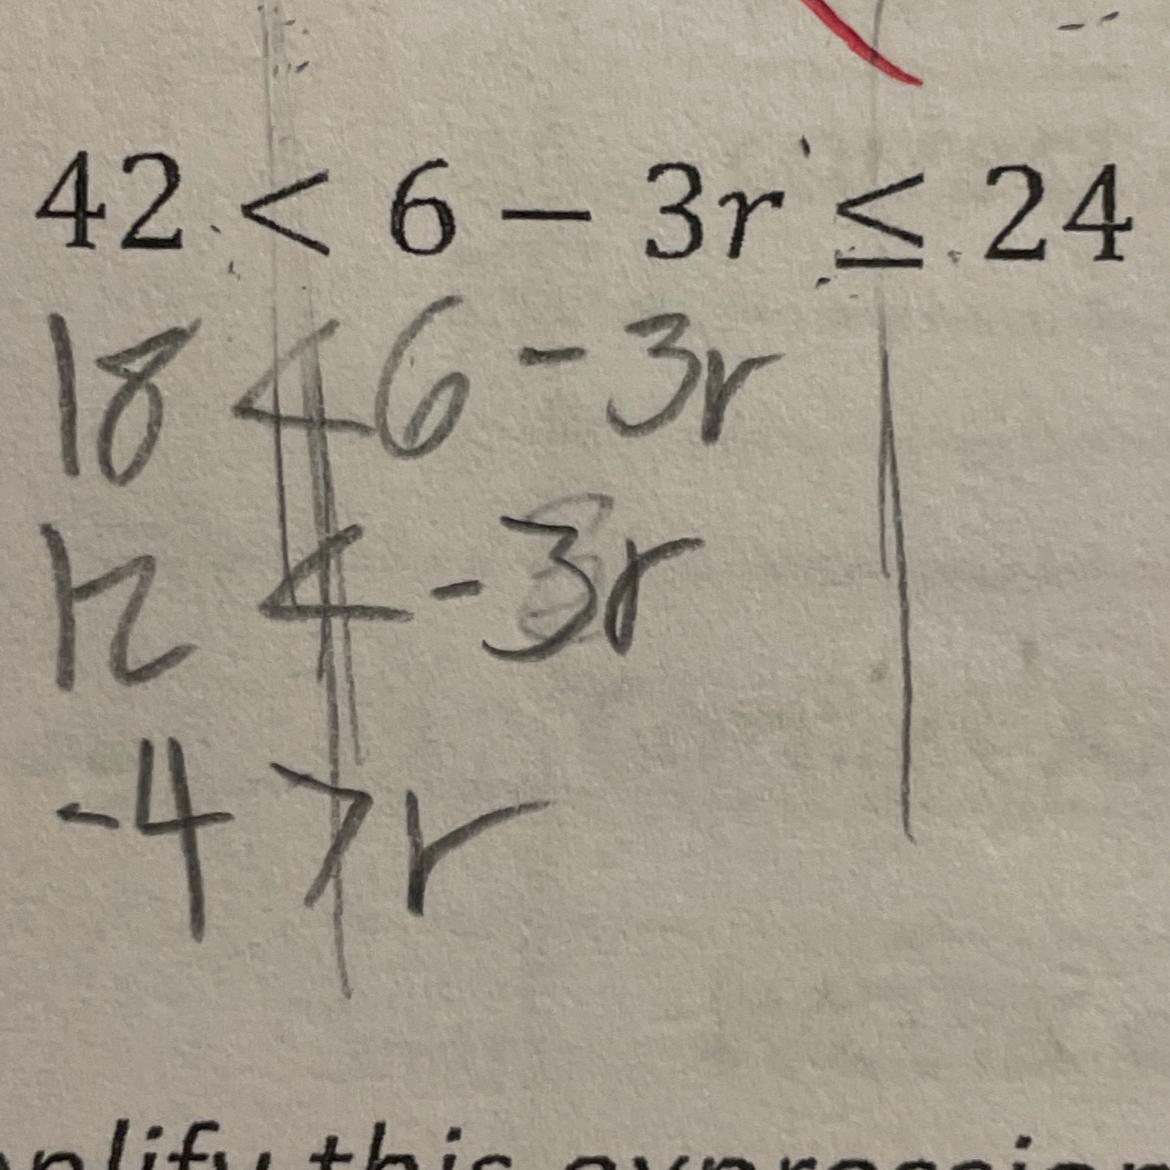 42 < 6 − 3r ≤ 24
18 < 6 - 3r
12 < -3r
-4 > r
plify this expression